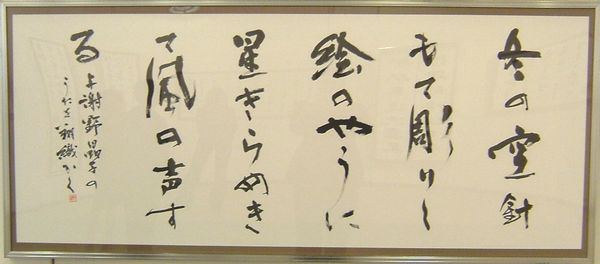 冬の空針
もて彫りし
絵のやうに
星きらめき
て風の声す
る
与謝野晶子の
うたを 織かく